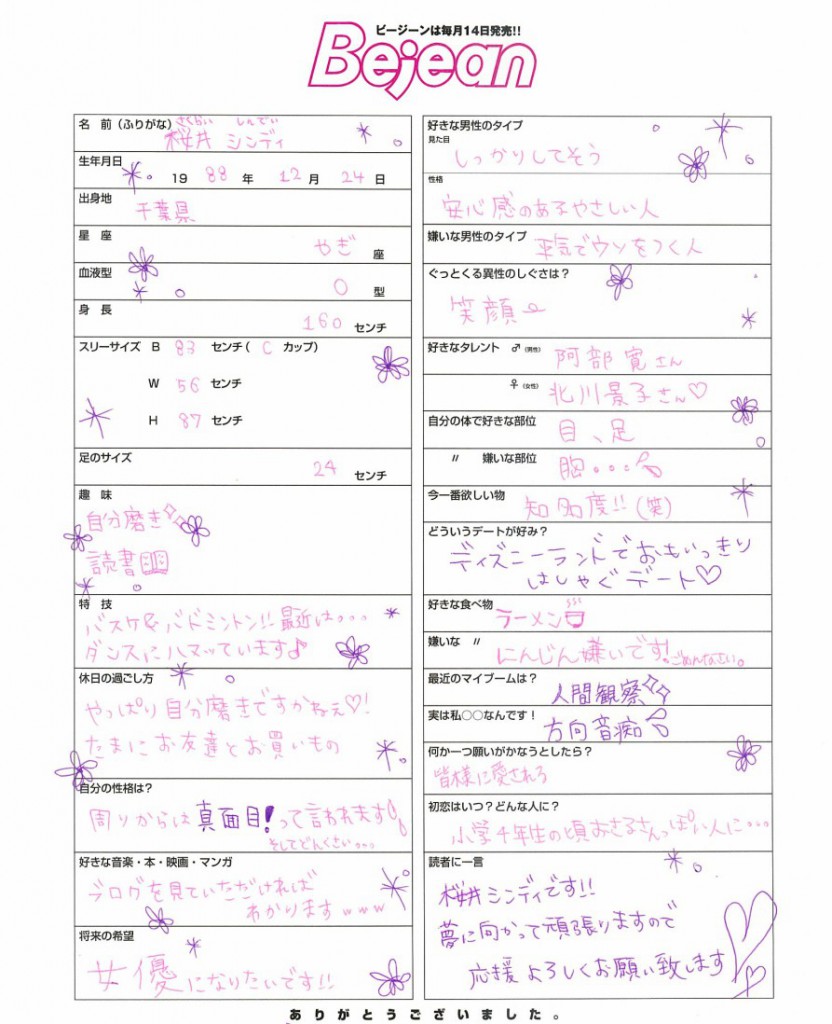 ビージーンは毎月14日発売!!
Bejean
名 前(ふりがな) さくらい しんでぃ
桜井 シンディ
生年月日
19 88 年 12 月 24 日
出身地
千葉県
星 座
やぎ 座
血液型
O 型
身 長
160 センチ
スリーサイズ B 83 センチ( C カップ)
W 56 センチ
H 87 センチ
足のサイズ
24 センチ
趣 味
自分磨き
読書
特 技
バスケ&バドミントン!!最近は。。。。
ダンスにハマッています♪
休日の過ごし方
やっぱり自分磨きですかねぇ♡!
たまにお友達とお買いもの
自分の性格は?
周りからは真面目!って言われます
そしてどんくさい。。。
好きな音楽・本・映画・マンガ
ブログを見ていただければ
わかりますwww
将来の希望
女優になりたいです!!
好きな男性のタイプ
見た目
しっかりしてそう
性格
安心感のあるやさしい人
嫌いな男性のタイプ
平気でウソをつく人
ぐっとくる異性のしぐさは?
笑顔
好きなタレント ♂(男性) 阿部寛さん
♀(女性) 北川景子さん♡
自分の体で好きな部位
目、足
〃 嫌いな部位
胸。。。
今一番欲しい物
知名度!!(笑)
どういうデートが好み?
ディズニーランドでおもいっきり
はしゃぐデート♡
好きな食べ物
ラーメン
嫌いな 〃
にんじん嫌いです!ごめんなさい。
最近のマイブームは?
人間観察
実は私○○なんです!
方向音痴
何か一つ願いがかなうとしたら?
皆様に愛される
初恋はいつ?どんな人に?
小学1年生の頃おさるさんっぽい人に。。。
読者に一言
桜井シンディです!!
夢に向かって頑張りますので
応援よろしくお願い致します
ありがとうございました。